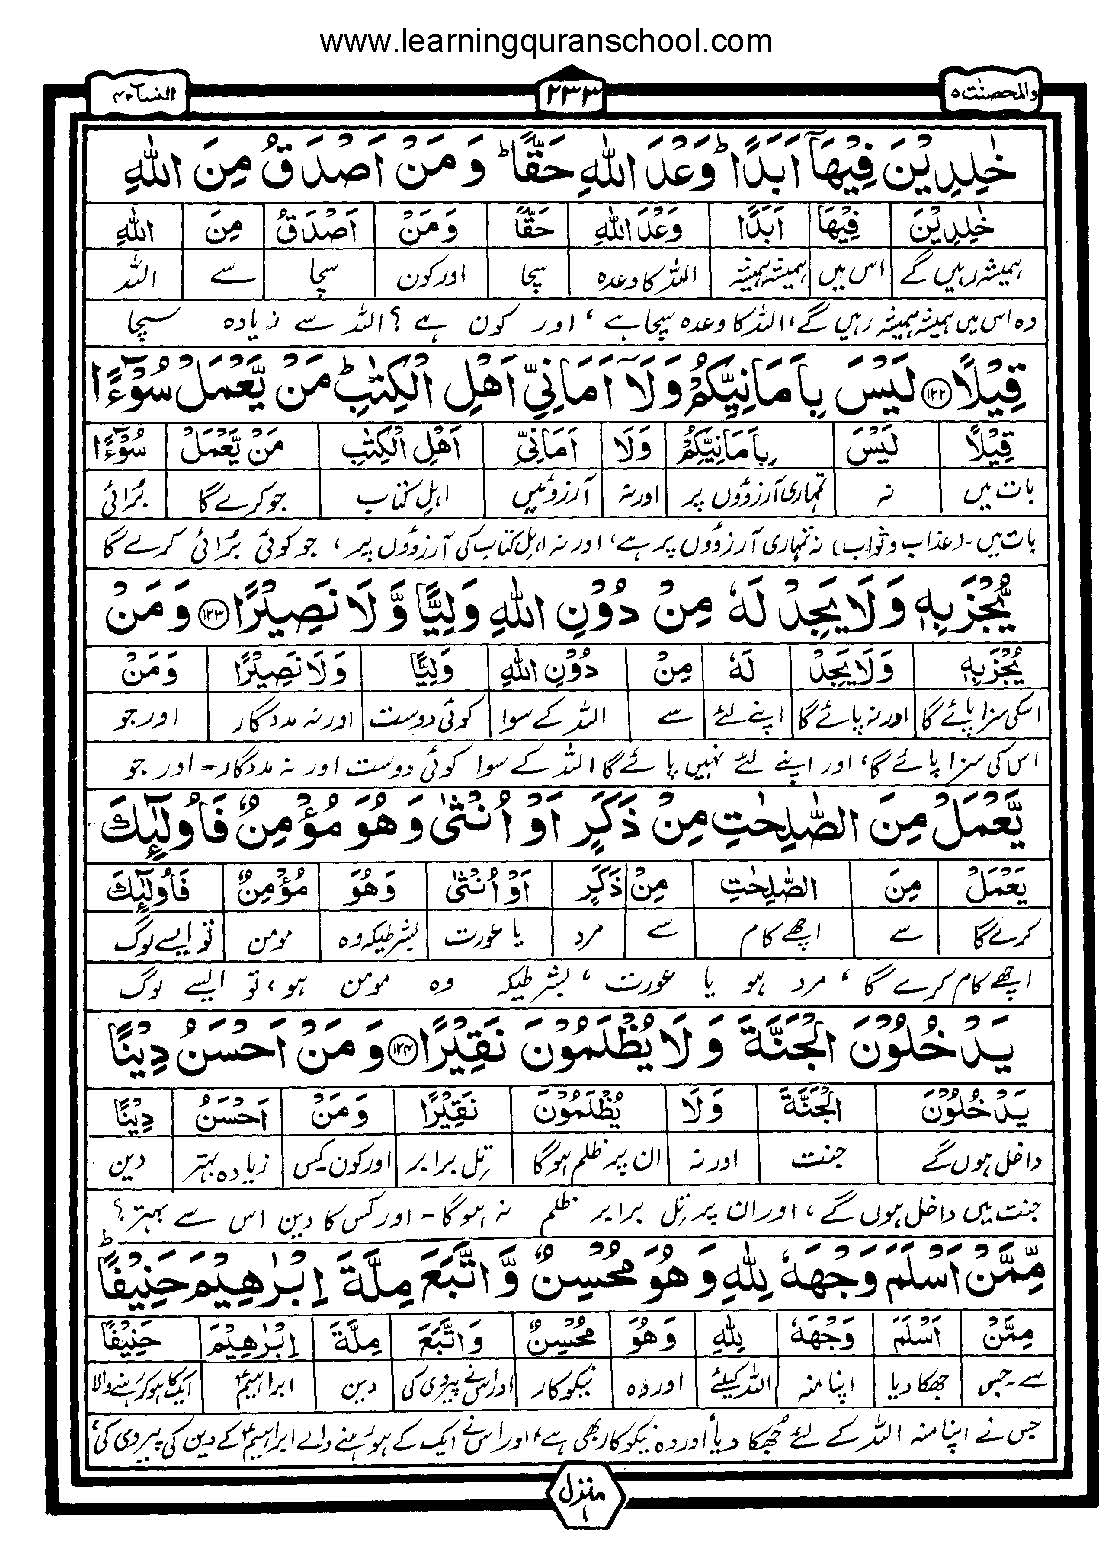 www.learningquranschool.com
والمحصنٰت ۵ ۲۳۳ النسآء ۴
خٰلِدِيْنَ فِيْهَآ اَبَدًا ؕ وَعْدَ اللّٰهِ حَقًّا ؕ وَ مَنْ اَصْدَقُ مِنَ اللّٰهِ
خٰلِدِيْنَ فِيْهَآ اَبَدًا وَعْدَ اللّٰهِ حَقًّا وَ مَنْ اَصْدَقُ مِنَ اللّٰهِ
ہمیشہ رہیں گے اس میں ہمیشہ ہمیشہ اللہ کا وعدہ سچا اور کون سچا سے اللہ
وہ اس میں ہمیشہ ہمیشہ رہیں گے، اللہ کا وعدہ سچا ہے، اور کون ہے؟ اللہ سے زیادہ سچا
قِيْلًا ﴿۱۲۲﴾ لَيْسَ بِاَمَانِيِّكُمْ وَلَاۤ اَمَانِيِّ اَهْلِ الْكِتٰبِ ؕ مَنْ يَّعْمَلْ سُوْٓءًا
قِيْلًا لَيْسَ بِاَمَانِيِّكُمْ وَلَا اَمَانِيِّ اَهْلِ الْكِتٰبِ مَنْ يَّعْمَلْ سُوْٓءًا
بات میں نہ تمہاری آرزوؤں پر اور نہ آرزوئیں اہل کتاب جو کرے گا بُرائی
بات میں۔ (عذاب و ثواب) نہ تمہاری آرزوؤں پر ہے، اور نہ اہل کتاب کی آرزوؤں پر، جو کوئی بُرائی کرے گا
يُّجْزَ بِهٖ وَلَا يَجِدْ لَهٗ مِنْ دُوْنِ اللّٰهِ وَلِيًّا وَّ لَا نَصِيْرًا ﴿۱۲۳﴾ وَ مَنْ
يُّجْزَ بِهٖ وَلَا يَجِدْ لَهٗ مِنْ دُوْنِ اللّٰهِ وَلِيًّا وَلَا نَصِيْرًا وَ مَنْ
اسکی سزا پائے گا اور نہ پائے گا اپنے لئے سے اللہ کے سوا کوئی دوست اور نہ مددگار اور جو
اس کی سزا پائے گا، اور اپنے لئے نہیں پائے گا اللہ کے سوا کوئی دوست اور نہ مددگار۔ اور جو
يَّعْمَلْ مِنَ الصّٰلِحٰتِ مِنْ ذَكَرٍ اَوْ اُنْثٰى وَ هُوَ مُؤْمِنٌ فَاُولٰٓئِكَ
يَّعْمَلْ مِنَ الصّٰلِحٰتِ مِنْ ذَكَرٍ اَوْ اُنْثٰى وَ هُوَ مُؤْمِنٌ فَاُولٰٓئِكَ
کرے گا سے اچھے کام سے مرد یا عورت بشرطیکہ وہ مومن تو ایسے لوگ
اچھے کام کرے گا، مرد ہو یا عورت، بشرطیکہ وہ مومن ہو، تو ایسے لوگ
يَدْخُلُوْنَ الْجَنَّةَ وَ لَا يُظْلَمُوْنَ نَقِيْرًا ﴿۱۲۴﴾ وَ مَنْ اَحْسَنُ دِيْنًا
يَدْخُلُوْنَ الْجَنَّةَ وَلَا يُظْلَمُوْنَ نَقِيْرًا وَ مَنْ اَحْسَنُ دِيْنًا
داخل ہوں گے جنت اور نہ ان پر ظلم ہوگا تِل برابر اور کون کس زیادہ بہتر دین
جنت میں داخل ہوں گے، اور ان پر تِل برابر ظلم نہ ہوگا۔ اور کس کا دین اس سے بہتر؟
مِّمَّنْ اَسْلَمَ وَجْهَهٗ لِلّٰهِ وَ هُوَ مُحْسِنٌ وَّ اتَّبَعَ مِلَّةَ اِبْرٰهِيْمَ حَنِيْفًا ؕ
مِّمَّنْ اَسْلَمَ وَجْهَهٗ لِلّٰهِ وَ هُوَ مُحْسِنٌ وَ اتَّبَعَ مِلَّةَ اِبْرٰهِيْمَ حَنِيْفًا
سے۔جس جھکا دیا اپنا منہ اللہ کیلئے اور وہ نیکوکار اور اس نے پیروی کی دین ابراہیمؑ ایک کا ہو کر رہنے والا
جس نے اپنا منہ اللہ کے لئے جُھکا دیا اور وہ نیکوکار بھی ہے، اور اس نے ایک کے ہو رہنے والے ابراہیمؑ کے دین کی پیروی کی،
منزل ۱